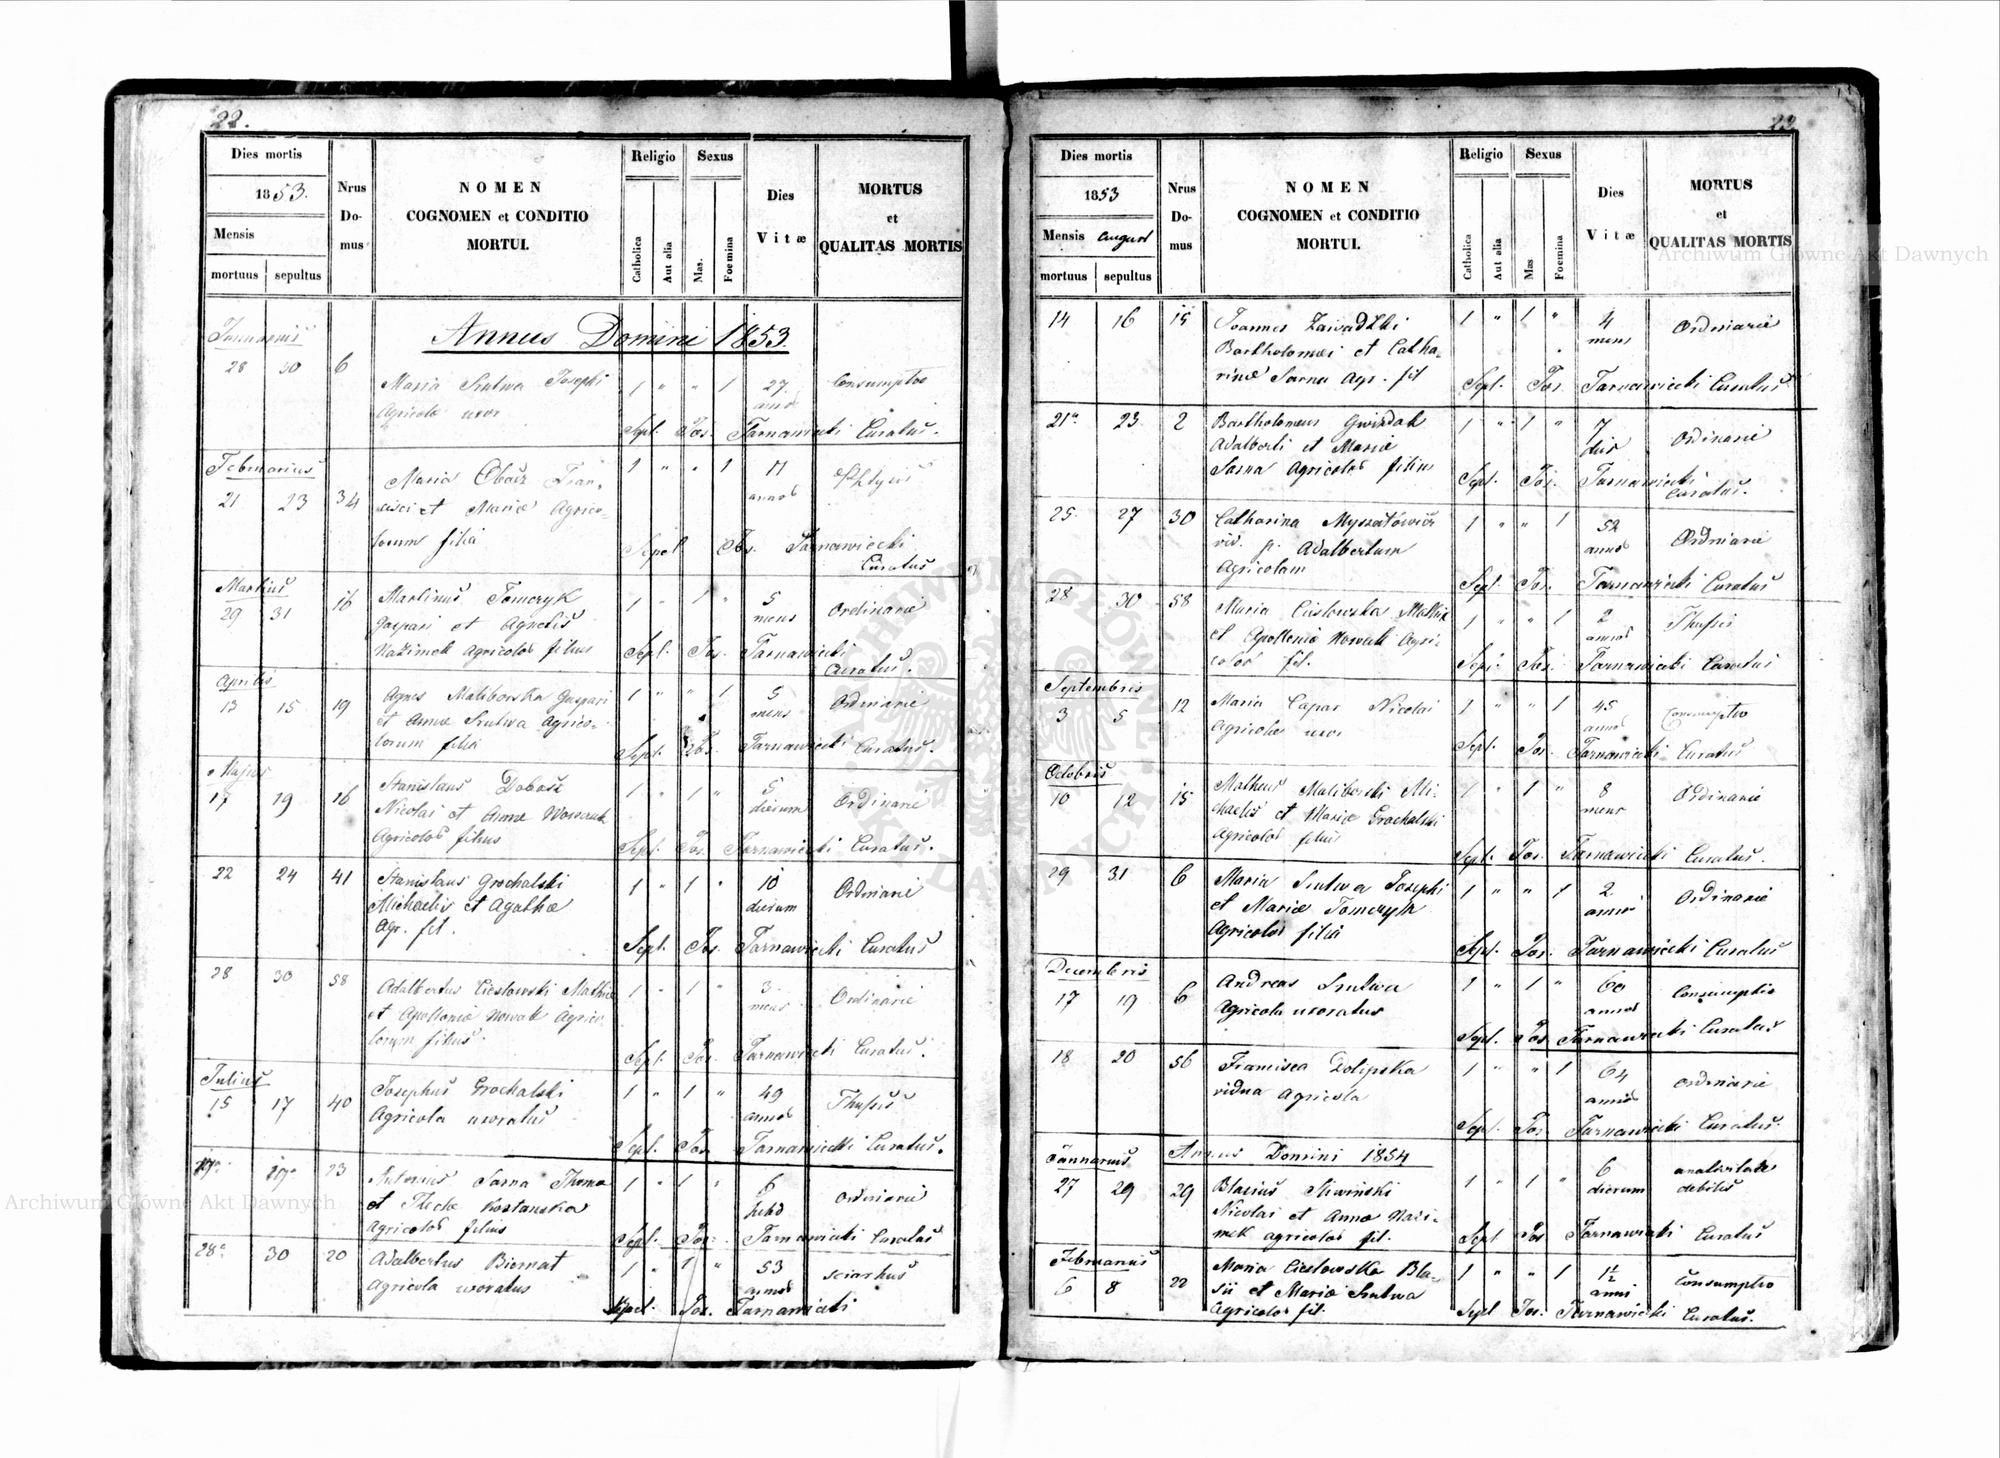 22.
Dies mortis
1853.
Mensis
mortuus sepultus
Nrus Do- mus
NOMEN
COGNOMEN et CONDITIO
MORTUI.
Religio
Catholica
Aut alia
Sexus
Mas.
Foemina
Dies
Vitæ
MORTUS
et
QUALITAS MORTIS
Januarius
Annus Domini 1853.
28 30 6
Maria Srutwa Josephi 1 " " 1 27 Consumptio
Agricola uxor annos
Sepl. Jos. Tarnawiecki Curatus.
Februarius
21 23 34
Maria Fran- 1 " " 1 annos
cisci et Mariæ Agrico-
larum filia
Sepel Jos. Tarnawiecki
Curatus
Martius
29 31 16
Martinus Tomczyk 1 " 1 " 5 Ordinarie
Gaspari et Agnetis mens
Nazimek agricolar filius Sepl. Jos. Tarnawiecki
Curatus.
Aprilis
13 15 19
Agnes Maliborska Gaspari 1 " " 1 5 Ordinarie
et Annæ Srutwa Agrico- mens
larum filia Sepl. Jos. Tarnawiecki Curatus.
Majus
17 19 16
Stanislaus Dobosz 1 " 1 " 5 Ordinarie
Nicolai et Annæ dierum
Agricolar filius Sepl. Jos. Tarnawiecki Curatus.
22 24 41 Stanislaus Grochalski 1 " 1 " 10 Ordinarie
Michaelis et Agathæ dierum
Agr. fil.
Sepl. Jos. Tarnawiecki Curatus
28 30 58 Adalbertus Cieslowski Mathiæ 1 " 1 " 3 Ordinarie
et Apolloniæ Nowak Agrico mens
larum filius.
Sepl. Jos. Tarnawiecki Curatus.
Julius
15 17 40
Josephus Grochalski 1 " 1 " 49 Thussis
Agricola uxoratus annos
Sepl. Jos. Tarnawiecki Curatus.
23
Antonius Sarna Thoma 1 " 1 " 6 Ordinarie
et Theclæ Kostanska hebd
Agricolar filius Sepl. Jos. Tarnawiecki Curatus
28a 30 20 Adalbertus Biernat 1 " 1 " 53
Agricola uxoratus annos
Sepel. Jos. Tarnawiecki
23.
Dies mortis
1853
Mensis August
mortuus sepultus
Nrus Do- mus
NOMEN
COGNOMEN et CONDITIO
MORTUI.
Religio
Catholica
Aut alia
Sexus
Mas
Foemina
Dies
Vitæ
MORTUS
et
QUALITAS MORTIS
14 16 15 Joannes Zawadzki 1 " 1 " 4 Ordinarie
Bartholomæi et Catha- mens
rinæ Sarna Agr. fil Sepl. Jos. Tarnawiecki Curatus
21a 23 2 Bartholomeus Gwizdak 1 " 1 " 7 Ordinarie
Adalberti et Mariæ
Sarna Agricolar filius Sepl. Jos. Tarnawiecki
Curatus.
25 27 30 Catharina 1 " " 1 52 Ordinarie
vid. p. Adalbertum annos
Agricolam
Sepl. Jos. Tarnawiecki Curatus
28 30 58 Maria Cieslowska Mathiæ 1 " " 1 2 Thussis
et Apolloniæ Nowak Agri- annos
colar fil. Sepl. Jos. Tarnawiecki Curatus
Septembris
3 5 12
Maria Capar Nicolai 1 " " 1 45 Consumptio
Agricolæ uxor annos
Sepl. Jos. Tarnawiecki Curatus
Octobris
10 12 15
Matheus Maliborski Mi- 1 " 1 " 8 Ordinarie
chaelis et Mariæ Grochalski mens
Agricolar filius Sepl. Jos. Tarnawiecki Curatus.
29 31 6 Maria Srutwa Josephi 1 " " 1 2 Ordinarie
et Mariæ Tomczyk annos
Agricolar filia Sepl. Jos. Tarnawiecki Curatus
Decembris
17 19 6
Andreas Srutwa 1 " 1 " 60 Consumptio
Agricola uxoratus annos
Sepl. Jos. Tarnawiecki Curatus
18 20 56 Francisca Dolipska 1 " " 1 64 Ordinarie
vidua Agricola annos
Sepl. Jos. Tarnawiecki Curatus.
Januarius Annus Domini 1854
27 29 29
Blasius Sliwinski 1 " 1 " 6 a nativitate
Nicolai et Annæ Nazi- dierum debilis
mek agricolar fil. Sepl Jos Tarnawiecki Curatus
Februarius
6 8 22
Maria Cieslowska Bla- 1 " " 1 1½ Consumptio
sii et Mariæ Srutwa anni
Agricolar fil. Sepl Jos. Tarnawiecki Curatus.
Archiwum Główne Akt Dawnych
Archiwum Główne Akt Dawnych
ARCHIWUM GŁÓWNE AKT DAWNYCH